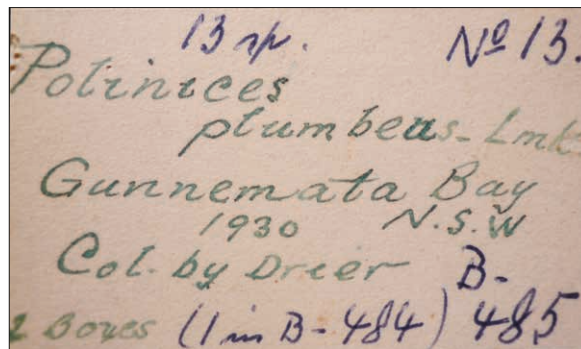 13 sp. No 13.
Polinices
plumbeus - Lmk
Gunnemata Bay
1930 N.S.W
Col. by Dreer B-
2 Boxes (1 in B-484) 485